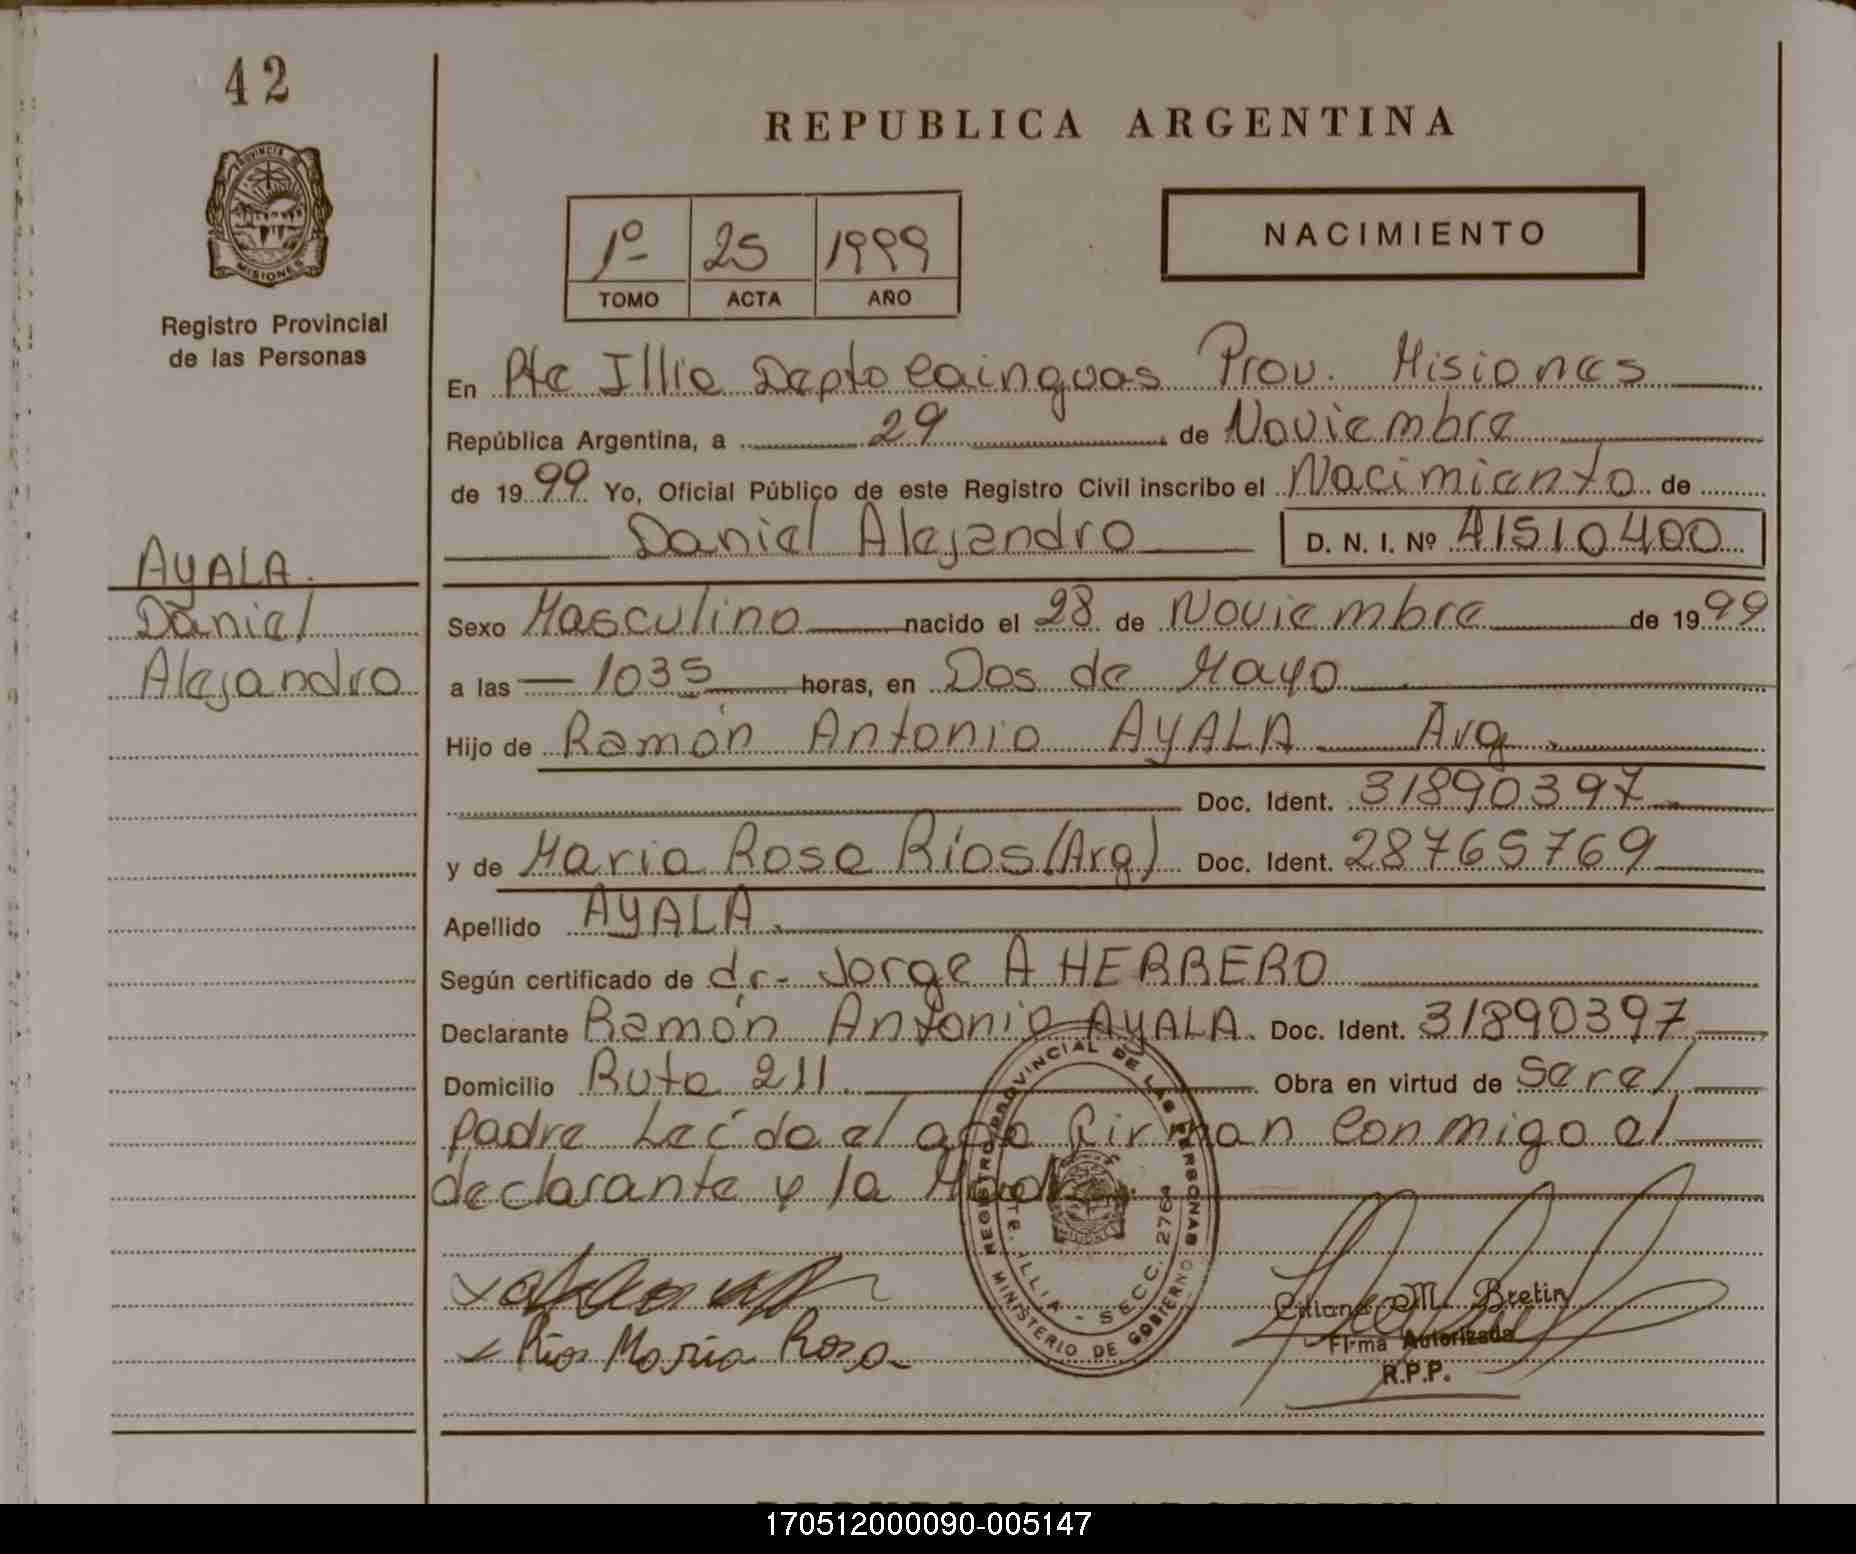 42
PROVINCIA DE
MISIONES
Registro Provincial
de las Personas
AYALA.
Daniel
Alejandro
REPUBLICA ARGENTINA
1º 25 1999
TOMO ACTA AÑO
NACIMIENTO
En Pte Illia Depto Cainguas Prov. Misiones
República Argentina, a 29 de Noviembre
de 1999 Yo, Oficial Público de este Registro Civil inscribo el Nacimiento de
Daniel Alejandro D. N. I. Nº 41510400
Sexo Masculino nacido el 28 de Noviembre de 1999
a las 1035 horas, en Dos de Mayo
Hijo de Ramón Antonio AYALA Arg.
Doc. Ident. 31890397
y de Maria Rosa Ríos (Arg) Doc. Ident. 28765769
Apellido AYALA.
Según certificado de dr- Jorge A HERRERO
Declarante Ramón Antonio AYALA. Doc. Ident. 31890397
Domicilio Ruta 211. Obra en virtud de Ser el
padre Leída el acta firman conmigo el
declarante y la Madre
REGISTRO PROVINCIAL DE LAS PERSONAS
MINISTERIO DE GOBIERNO
PTE. ILLIA - SECC. 2764
Rios Maria Rosa
Liliana M. Bretin
Firma Autorizada
R.P.P.
REPUBLICA ARGENTINA
170512000090-005147